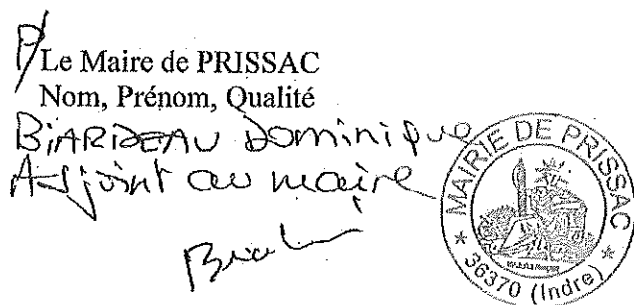 P/Le Maire de PRISSAC
Nom, Prénom, Qualité
BIARDEAU Dominique
Adjoint au maire
MAIRIE DE PRISSAC
* 36370 (Indre) *